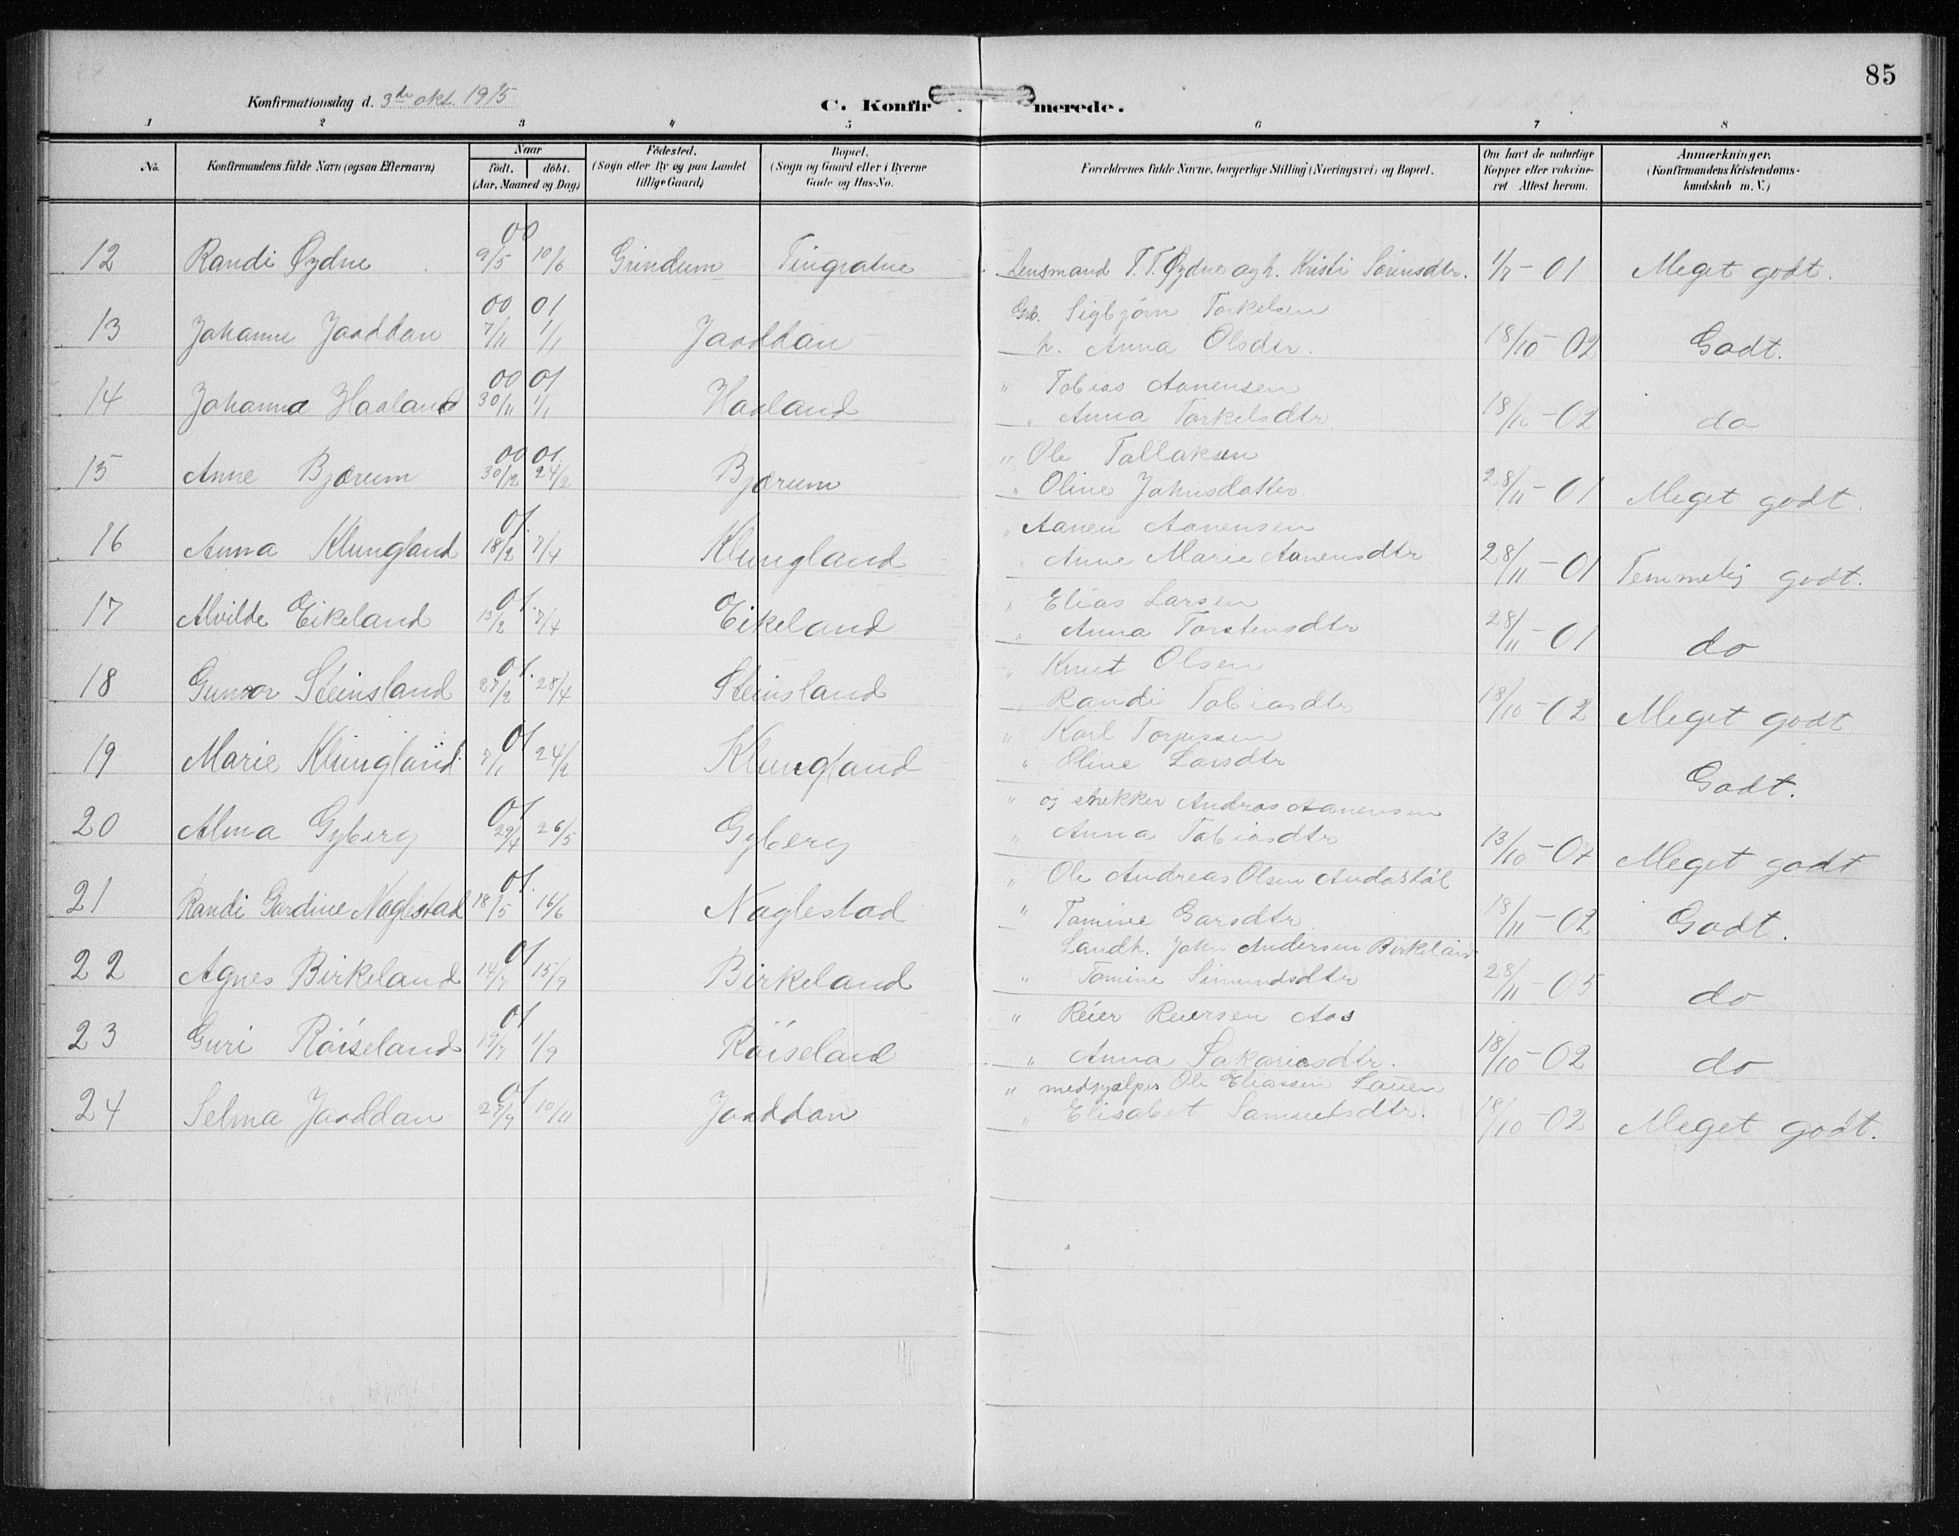 85
Konfirmationsdag d. 3de okt. 1915
C. Konfirmerede.
1 2 3 4 5 6 7 8
No. Konfirmandens fulde Navn (ogsaa Efternavn) Naar födt. döbt. (Aar, Maaned og Dag) Födested. (Sogn eller By og paa Landet tillige Gaard) Bopæl. (Sogn og Gaard eller i Byerne Gade og Hus-No. Forældrenes fulde Navne, borgerlige Stilling (Næringsvei) og Bopæl. Om havt de naturlige Kopper eller vakcineret Attest herom. Anmærkninger. (Konfirmandens Kristendomskundskab m. V.)
00
12 Randi Øydne 9/5 10/6 Grindum Tingvatne Lensmand T. T. Øydne og h. Kristi Sørensdtr. 1/7-01 Meget godt.
00 01 Gb. Sigbjørn Torkelsen
13 Johanne Jaaddan 7/11 1/1 Jaaddan h. Anna Olsdtr. 18/10-02 Godt.
00 01 " Tobias Aanensen
14 Johanna Haaland 30/11 1/1 Haaland " Anna Torkelsdtr. 18/10-02 do
00 01 " Ole Tallaksen
15 Anne Bjærum 30/12 24/2 Bjærum " Oline 28/11-01 Meget godt.
01. " Aanen Aanensen
16 Anna Klungland 18/2 7/4 Klungland " Anne Marie Aanensdtr 28/11-01 Temmelig godt.
01. " Elias Larsen
17 Alvilde Eikeland 13/2 7/4 Eikeland " Anna Torstensdtr 28/11-01 do
01. " Knut Olsen
18 Gunvor Steinsland 27/2 28/4 Steinsland " Randi Tobiasdtr 18/10-02 Meget godt
01 " Karl Torjussen
19 Marie Klungland 7/1 24/2 Klungland " Oline Larsdtr Godt.
01 " og snekker Andras Aanensen
20 Alma Gyberg 29/4 26/5 Gyberg " Anna Tobiasdtr 13/10-07 Meget godt
01. " Ole Andreas Olsen
21 Randi Gardine Naglestad 18/5 16/6 Naglestad " Tomine Garsdtr 18/11-02 Godt.
01 Landh. John Andersen Birkeland
22 Agnes Birkeland 14/7 15/9 Birkeland " Tomine Simundsdtr 28/11-05 do
01 " Reier Reiersen Aas
23 Guri Röiseland 19/7 1/9 Röiseland " Anna Sakariasdtr. 18/10-02 do
01 " medhjælper Ole Eliassen Lauen
24 Selma Jaaddan 27/9 10/11 Jaaddan " Elisabet Samuelsdtr. 18/10-02 Meget godt.